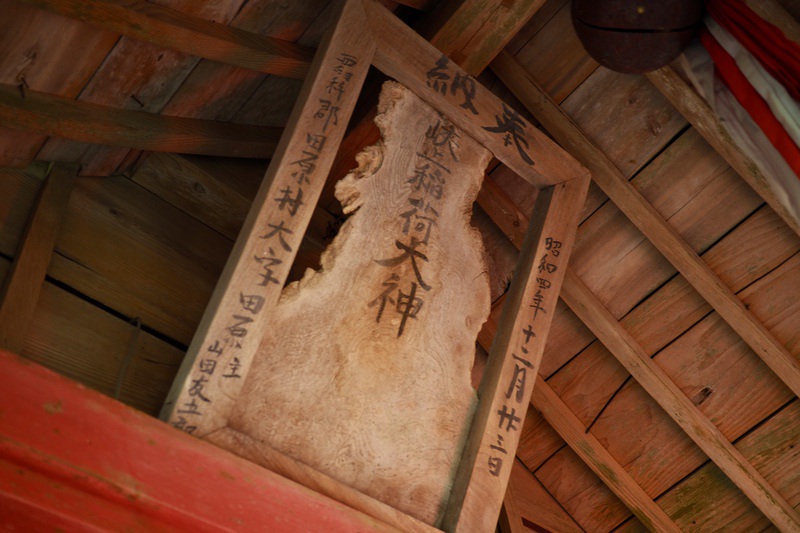 奉納
稲荷大神
昭和四年十二月廿三日
郡田原村大字田原主
山田友五郎